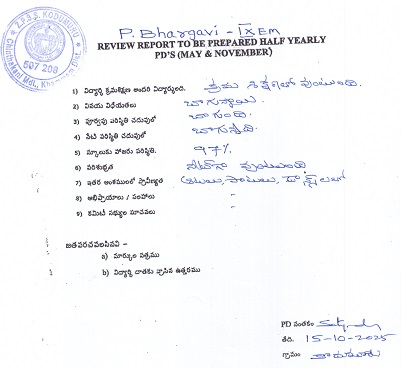 Z.P.S.S. KODUMURU
507 208
P. Bhargavi - IX EM
REVIEW REPORT TO BE PREPARED HALF YEARLY
PD'S (MAY & NOVEMBER)
1) విద్యార్థి క్రమశిక్షణ అందరి విద్యార్థులది. క్రమ శిక్షణలో వుంటుంది.
2) వినయ విధేయతలు బాగున్నాయి
3) పూర్వపు పరిస్థితి చదువులో బాగుంది
4) నేటి పరిస్థితి చదువులో బాగున్నది
5) స్కూలుకు హాజరు పరిస్థితి. 97%
6) పరిశుభ్రత నీట్‌గా వుంటుంది
7) ఇతర అంశములలో ప్రావీణ్యత పాటలు,
8) అభిప్రాయాలు / సలహాలు -
9) కమిటీ సభ్యుల సూచనలు -
జతపరచవలసినవి -
a) మార్కుల పత్రము
b) విద్యార్థి దాతకు వ్రాసిన ఉత్తరము
PD సంతకం
తేది. 15-10-2025
గ్రామం